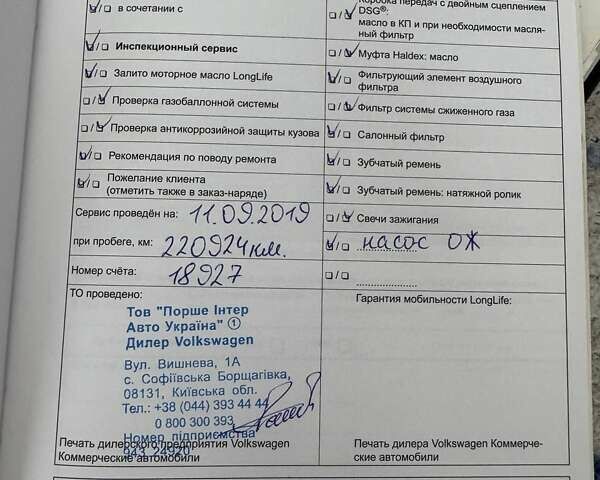 в сочетании с
Инспекционный сервис
Залито моторное масло LongLife
Проверка газобаллонной системы
Проверка антикоррозийной защиты кузова
Рекомендация по поводу ремонта
Пожелание клиента
(отметить также в заказ-наряде)
Сервис проведён на: 11.09.2019
при пробеге, км: 220924 км.
Номер счёта: 18927
Коробка передач с двойным сцеплением
DSG®:
масло в КП и при необходимости масля-
ный фильтр
Муфта Haldex: масло
Фильтрующий элемент воздушного
фильтра
Фильтр системы сжиженного газа
Салонный фильтр
Зубчатый ремень
Зубчатый ремень: натяжной ролик
Свечи зажигания
насос ОЖ
ТО проведено:
Тов "Порше Інтер
Авто Україна" ①
Дилер Volkswagen
Вул. Вишнева, 1А
с. Софіївська Борщагівка,
08131, Київська обл.
Тел.: +38 (044) 393 44 44
0 800 300 393
Номер підприємства
943 24920
Печать дилерского предприятия Volkswagen
Коммерческие автомобили
Гарантия мобильности LongLife:
Печать дилера Volkswagen Коммерче-
ские автомобили